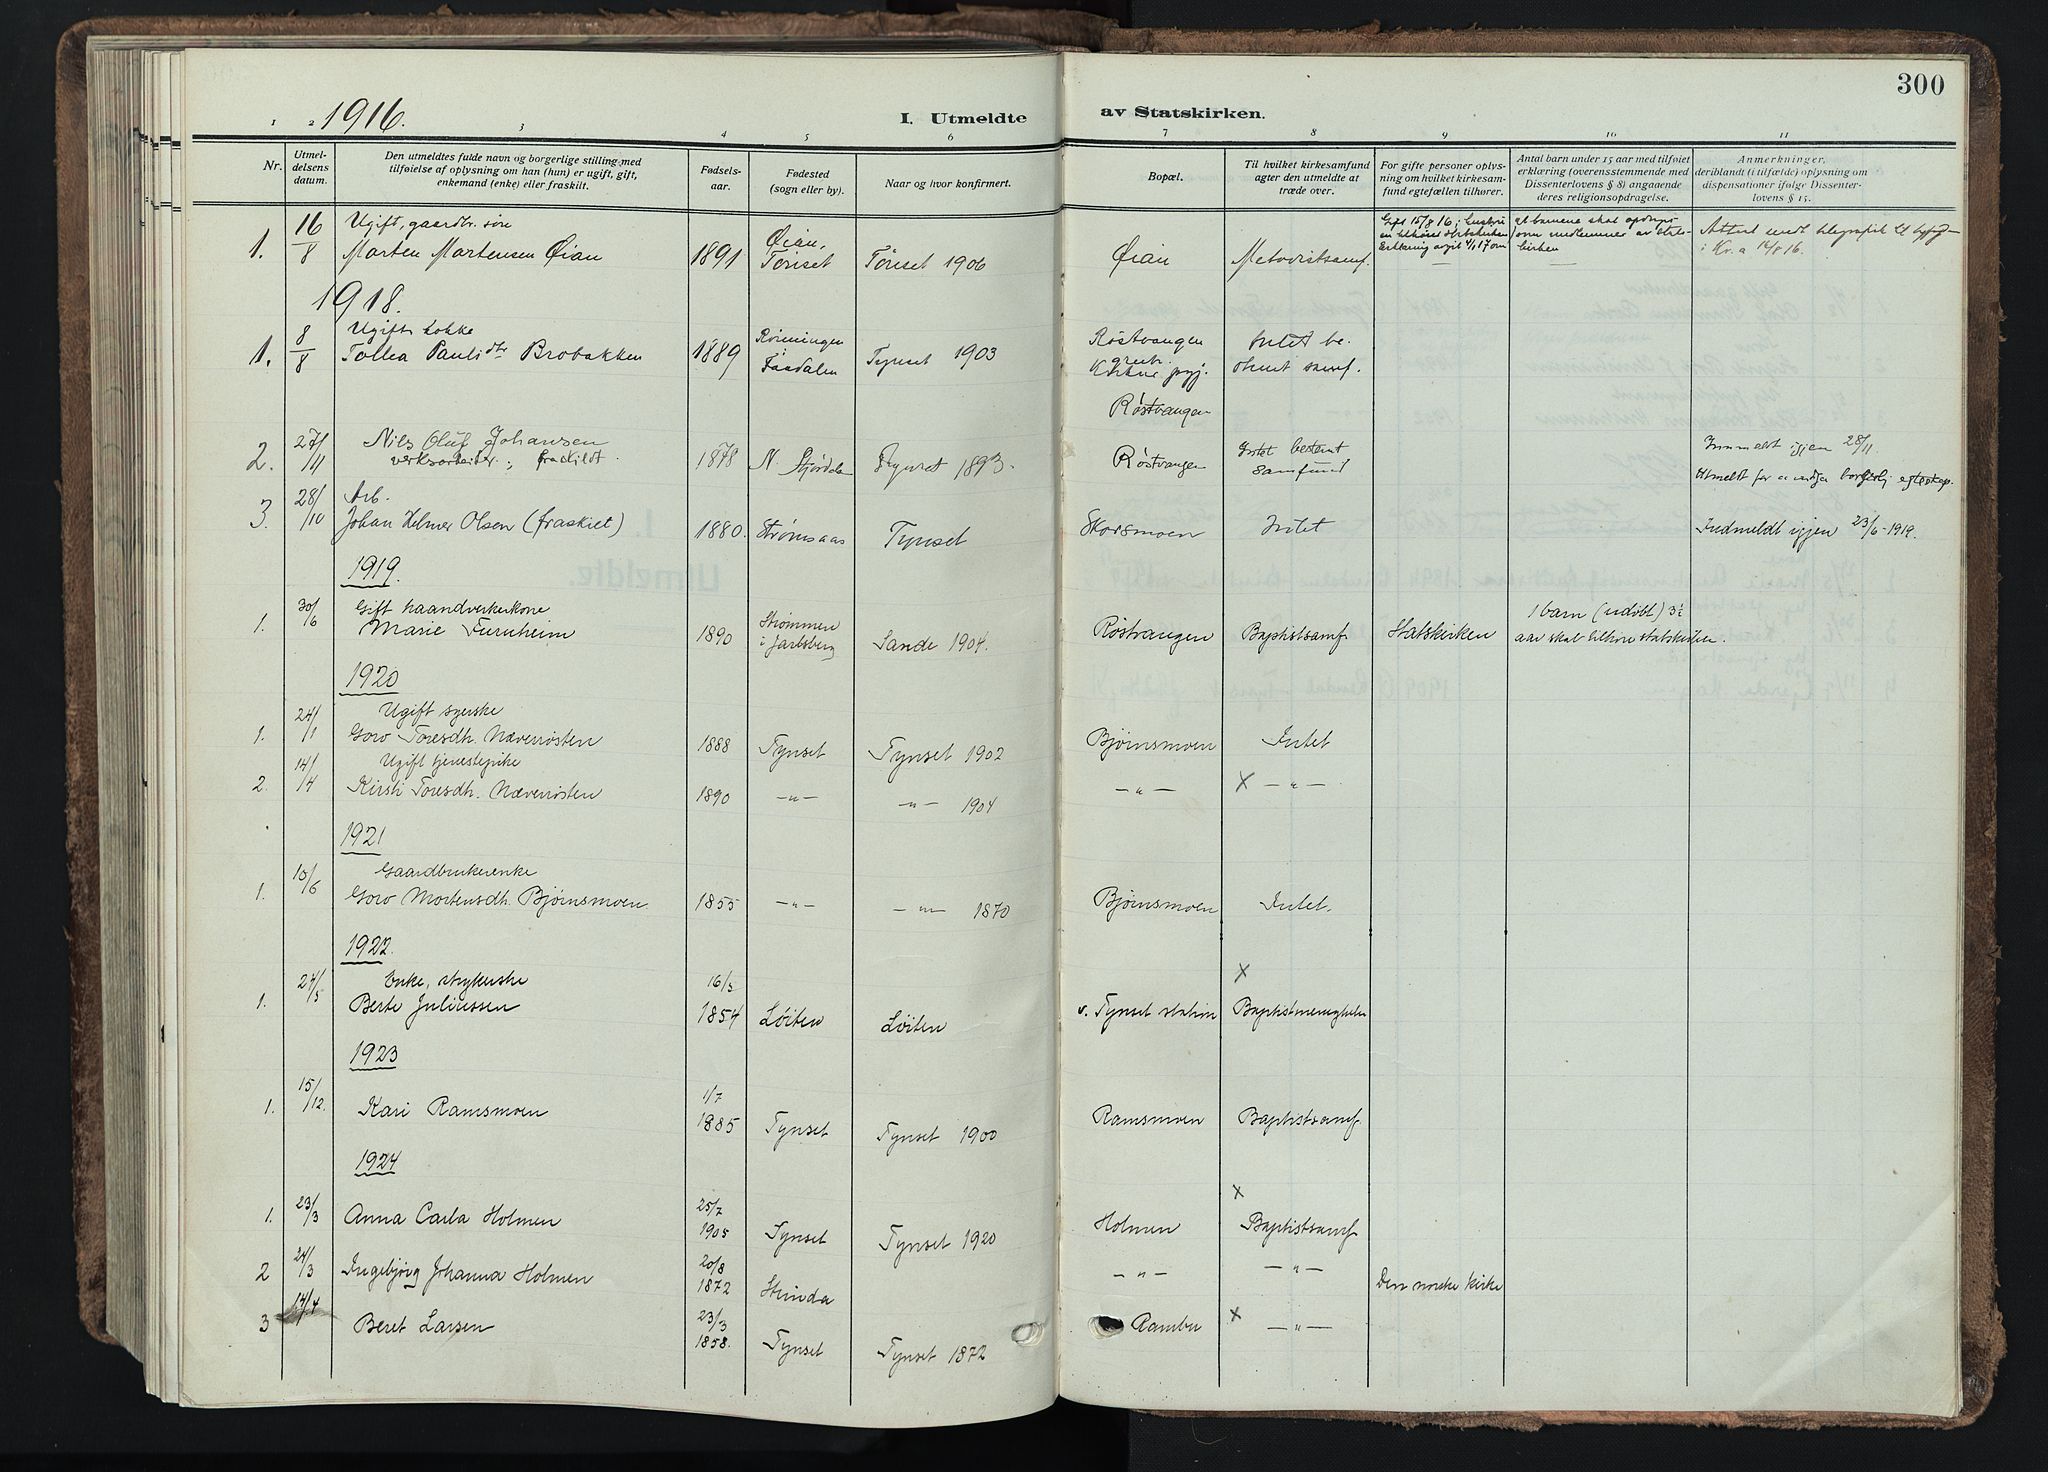 300
1916.
I. Utmeldte av Statskirken.
1 2 3 4 5 6 7 8 9 10 11
Nr.
Utmeldelsens datum.
Den utmeldtes fulde navn og borgerlige stilling med tilføielse av oplysning om han (hun) er ugift, gift, enkemand (enke) eller fraskilt.
Fødselsaar.
Fødested (sogn eller by).
Naar og hvor konfirmert.
Bopæl.
Til hvilket kirkesamfund agter den utmeldte at træde over.
For gifte personer oplysning om hvilket kirkesamfund egtefællen tilhører.
Antal barn under 15 aar med tilføiet erklæring (overensstemmende med Dissenterlovens § 8) angaaende deres religionsopdragelse.
Anmerkninger, deriblandt (i tilfælde) oplysning om dispensationer ifølge Dissenterlovens § 15.
1. 16/8 Ugift, gaardbr. søn
Morten Mortensen Øian 1891 Øian, Tønset Tønset 1906 Øian Metodistsamf. Gift 15/8 16; at barnene skal som medlemmer av statskirken Attest sendt telegrafisk til i Kr.a 14/8 16.
1918.
1. 8/8 Ugift kokke
Tollea Paulsdtr Brobakken 1889 Tynset 1903 Røstvangen Intet be-
stemt samf.
Røstvangen
2. 27/11 Nils Oluf Johansen
verksarbeider, fraskildt. 1878 N. Stjørdalen Tynset 1893. Røstvangen Intet bestemt samfund Innmeldt igjen 28/11
Utmeldt for borgerlig egteskap.
3. 28/10 Arb.
Johan Helmer Olsen (fraskilt) 1880. Strømsaas Tynset Skorsmoen Intet Indmeldt igjen 23/6-1919.
1919.
1. 30/6 Gift haandverkerkone
Marie Furuheim 1890 Strømmen i Jarlsberg Sande 1904. Røstvangen Baptistsamf. Statskirken 1 barn (udøbt) 3½ aar skal tilhøre statskirken.
1920
1. 24/1 Ugift syerske
Goro Toresdtr. Næverrosten 1888 Tynset Tynset 1902 Bjørnsmoen Intet
2. 14/4 Ugift tjenestepike
Kirsti Toresdtr. Næverrosten 1890 —"— —"— 1904 —"— X —"—
1921
1. 10/6 Gaardbrukerenke
Goro Mortensdtr. Bjørnsmoen 1855 —"— —"— 1870 Bjørnsmoen Intet.
1922.
1. 27/5 Enke, strykerske 16/3 X
Berte Juliussen 1854 Løiten Løiten v. Tynset station Baptistmenigheten
1923
1. 15/12. Kari Ramsmoen 1/7 1885 Tynset Tynset 1900 Ramsmoen Baptistsamf.
1924
1. 23/3 Anna Carla Holmen 25/7 1905 Tynset Tynset 1920 Holmen X Baptistsamf.
2 24/3 Ingebjørg Johanna Holmen 20/8 1872 Strinda —"— —"— Den norske kirke
3 14/4 Beret Larsen 23/3 1858. Tynset Tynset 1872 Rambu X —"—